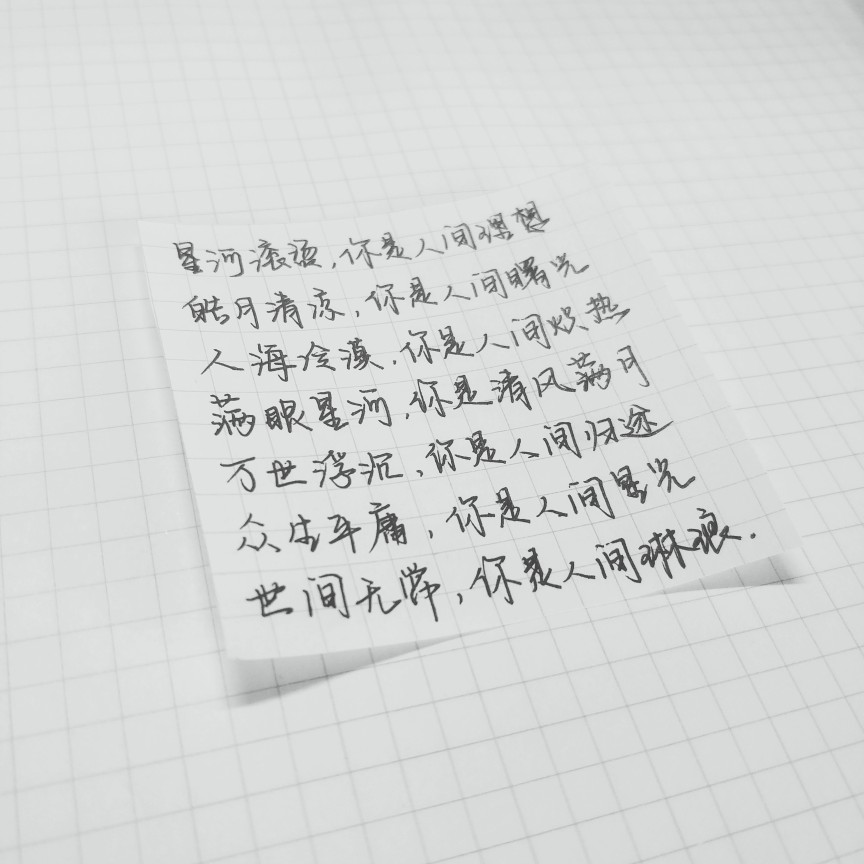 星河滚烫，你是人间理想
皓月清凉，你是人间曙光
人海冷漠，你是人间炽热
满眼星河，你是清风满月
万世浮沉，你是人间归途
众生平庸，你是人间星光
世间无常，你是人间琳琅.